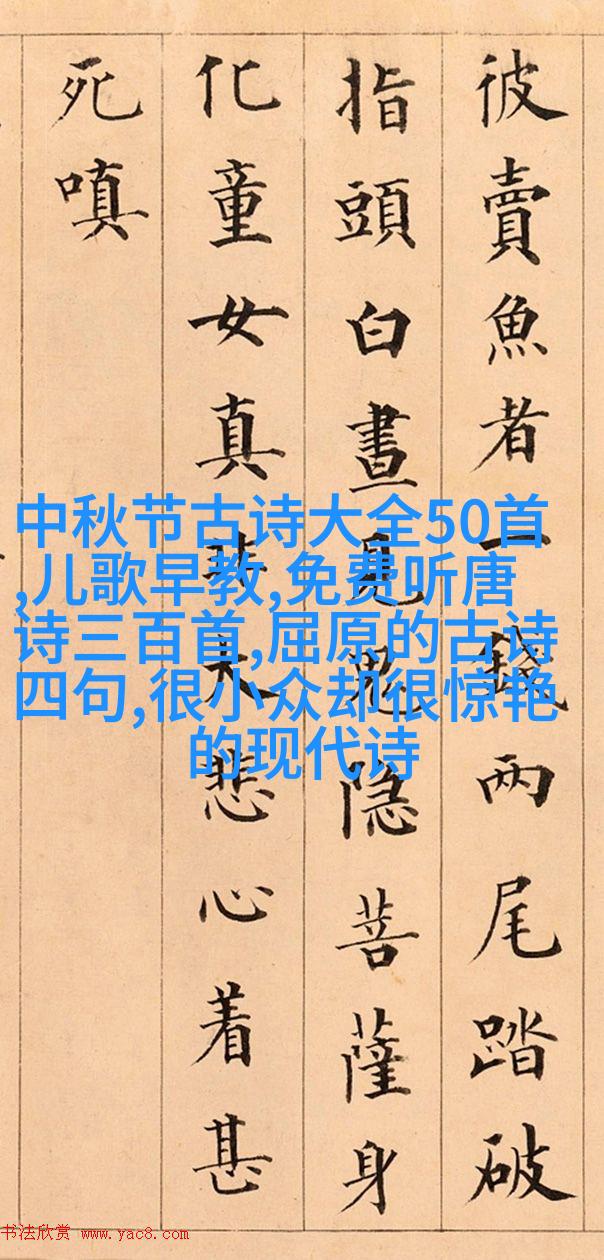 彼賣魚者一錢兩尾踏破
指頭白晝見鬼隐菩薩身
化童女真大悲心着甚
死嗔
中秋节古诗大全50首
,儿歌早教,免费听唐
诗三百首,屈原的古诗
四句,很小众却很惊艳
的现代诗
书法欣赏 www.yac8.com